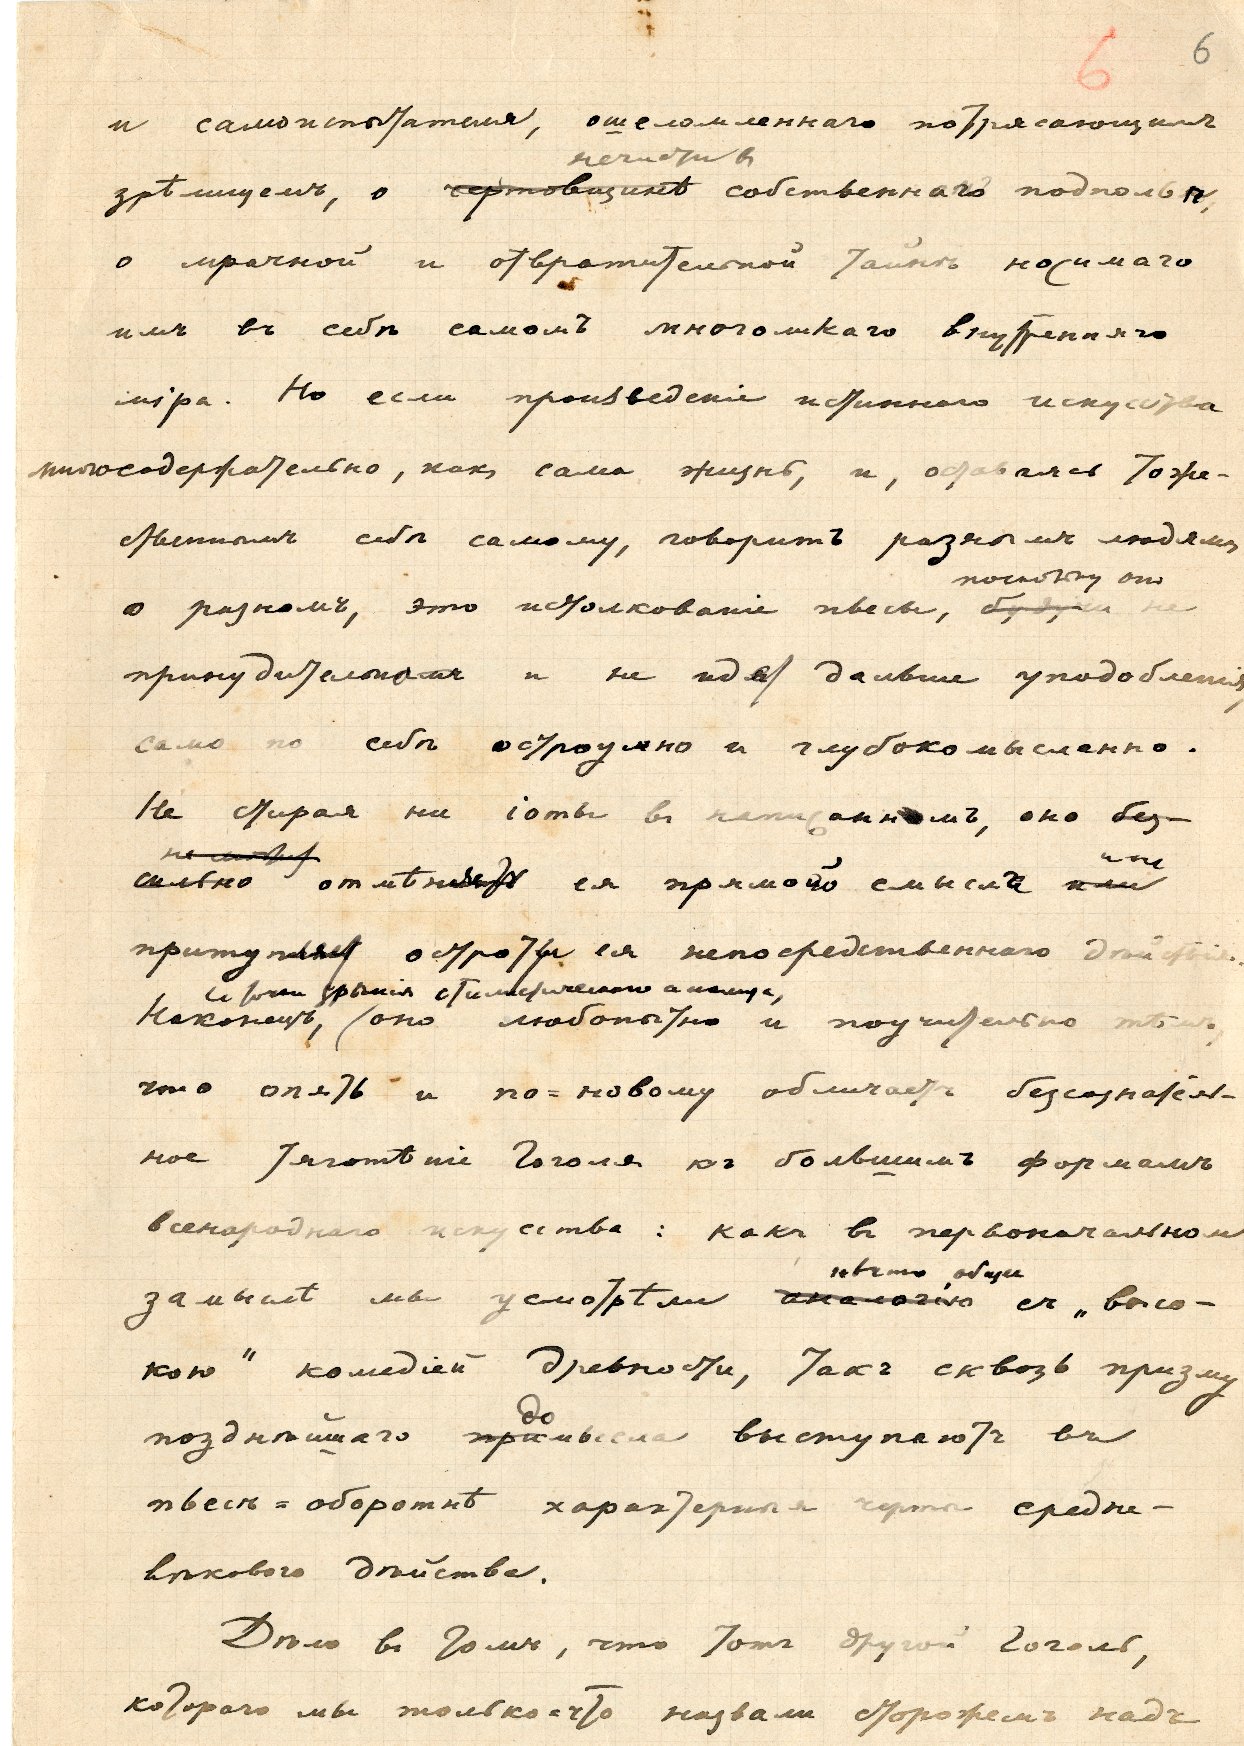 6 6
и самоиспытателя, ошеломленнаго потрясающимъ
нечисти въ
зрѣлищемъ, о чертовщинѣ собственнаго подполья,
о мрачной и отвратительной тайнѣ носимаго
имъ въ себѣ самомъ многоликаго внутренняго
міра. Но если произведеніе истиннаго искусства
многосодержательно, какъ сама жизнь, и, оставаясь тоже-
ственнымъ себѣ самому, говоритъ разнымъ людямъ
поскольку оно
о разномъ, это истолкованіе пьесы, будучи не
принудительнымъ и не идя дальше уподобленія,
само по себѣ остроумно и глубокомысленно.
Не стирая ни іоты въ написанномъ, оно без-
не можетъ или
сильно отмѣнить ея прямого смысла или
притупить остроты ея непосредственнаго дѣйствія.
съ точки зрѣнія стилистическаго анализа,
Наконецъ, оно любопытно и поучительно тѣмъ,
что опять и по=новому обличаетъ безсознатель-
ное тяготѣніе Гоголя къ большимъ формамъ
всенароднаго искусства: какъ въ первоначальномъ
нѣчто общее
замыслѣ мы усмотрѣли аналогію съ „высо-
кою" комедіей древности, такъ сквозь призму
до
позднѣйшаго примысла выступаютъ въ
пьесѣ=оборотнѣ характерныя черты средне-
вѣковаго дѣйства.
Дѣло въ томъ, что тотъ другой Гоголь,
котораго мы только=что назвали сторожемъ надъ